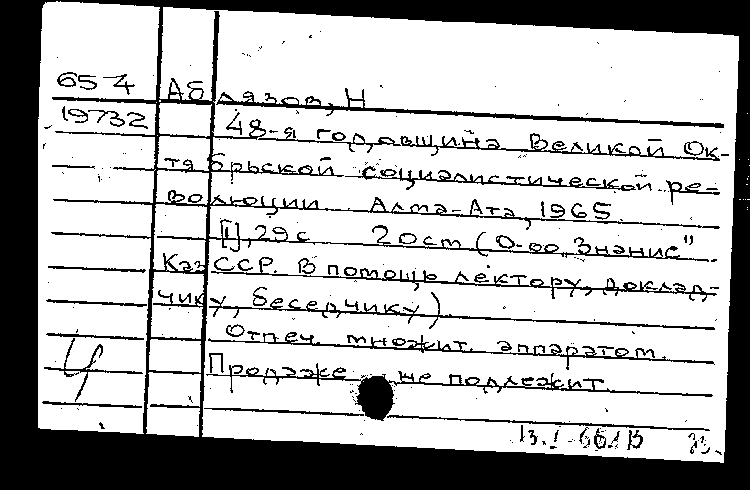 654 Аблязов, Н
19732 48-я годовщина Великой Ок-
тябрьской социалистической ре-
волюции. Алма-Ата, 1965.
[1], 29 с 20 cm (О-во „Знание"
КазССР. В помощь лектору, доклад-
чику, беседчику)
Отпеч. множит. аппаратом.
Продаже не подлежит.
Ч